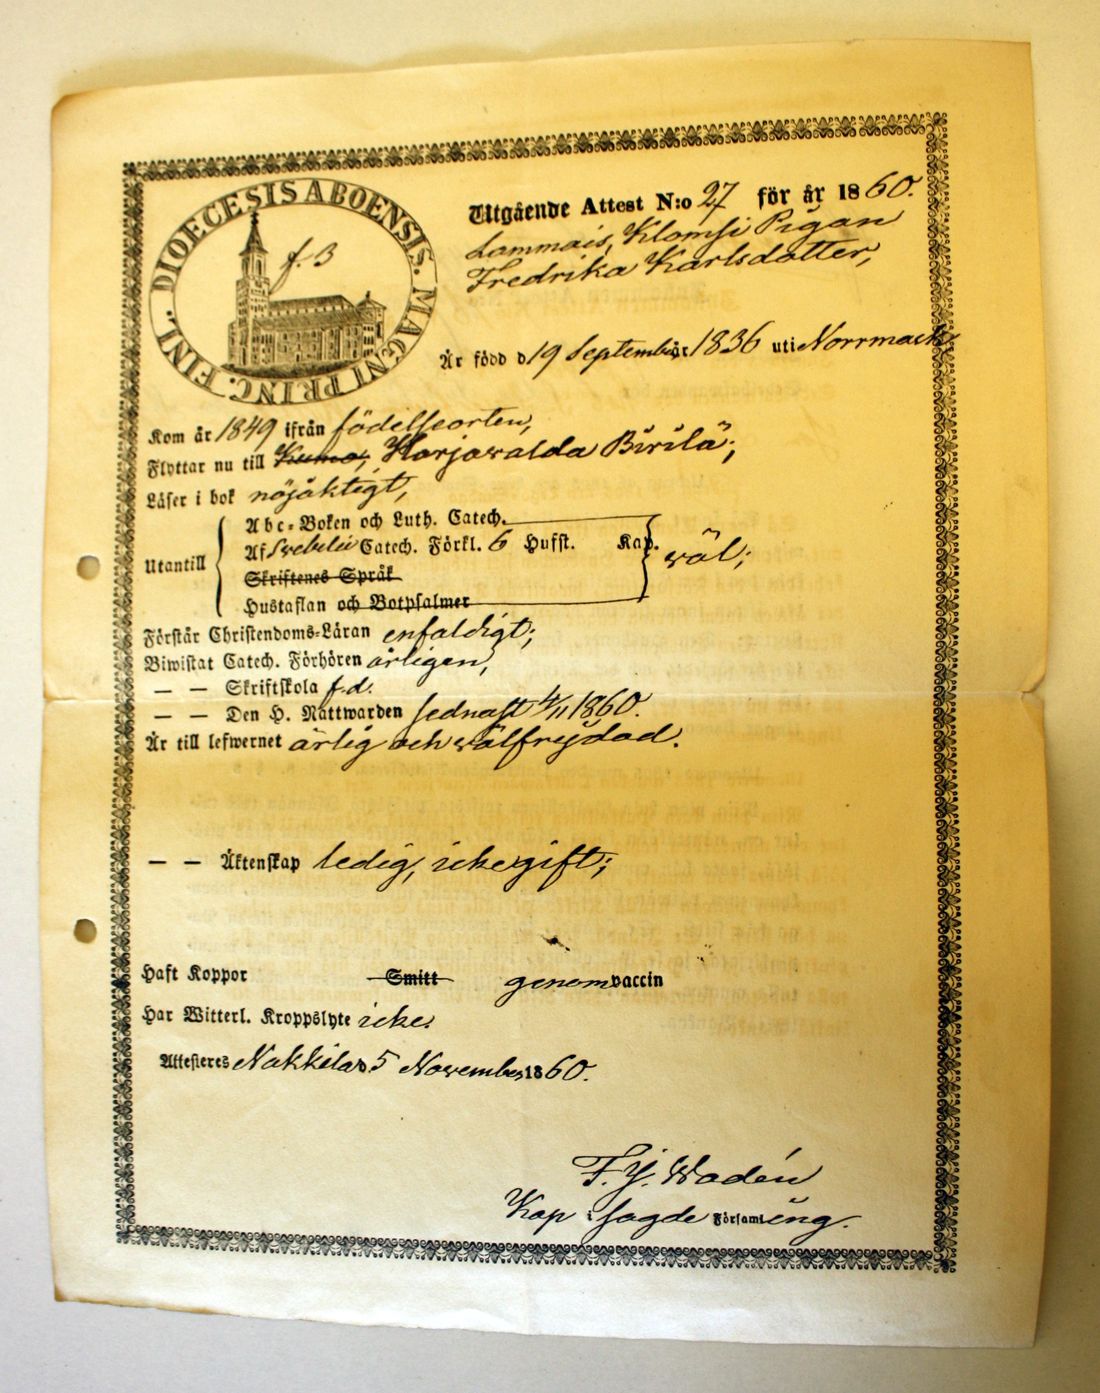 DIOECESIS ABOENSIS. MAGNI PRINC. FINL.
f. 3
Utgående Attest N:o 27 för år 1860.
Lammais, Klomsi Pigan
Fredrika Karlsdotter,
Är född d 19 September 1836 uti Norrmark,
Kom år 1849 ifrån födelseorten,
Flyttar nu till Kumo, Harjawalda Birilä;
Läser i bok nöjaktigt,
Utantill
Abc-Boken och Luth. Catech.
Af Svebelii Catech. Förkl. 6 Hufst. Kap.
Skriftenes Språk
Hustaflan och Botpsalmer
wäl;
Förstår Christendoms-Läran enfaldigt;
Biwistat Catech. Förhören årligen,
— — Skriftskola f.d.
— — Den H. Nattwarden sednast 4/11 1860.
Är till lefwernet ärlig och wälfrejdad.
— — Äktenskap ledig, icke gift;
Haft Koppor Smitt genom vaccin
Har Witterl. Kroppslyte icke.
Attesteras Nakkila d 5 November 1860.
F. J. Wadén
Kap i sagde Församling.